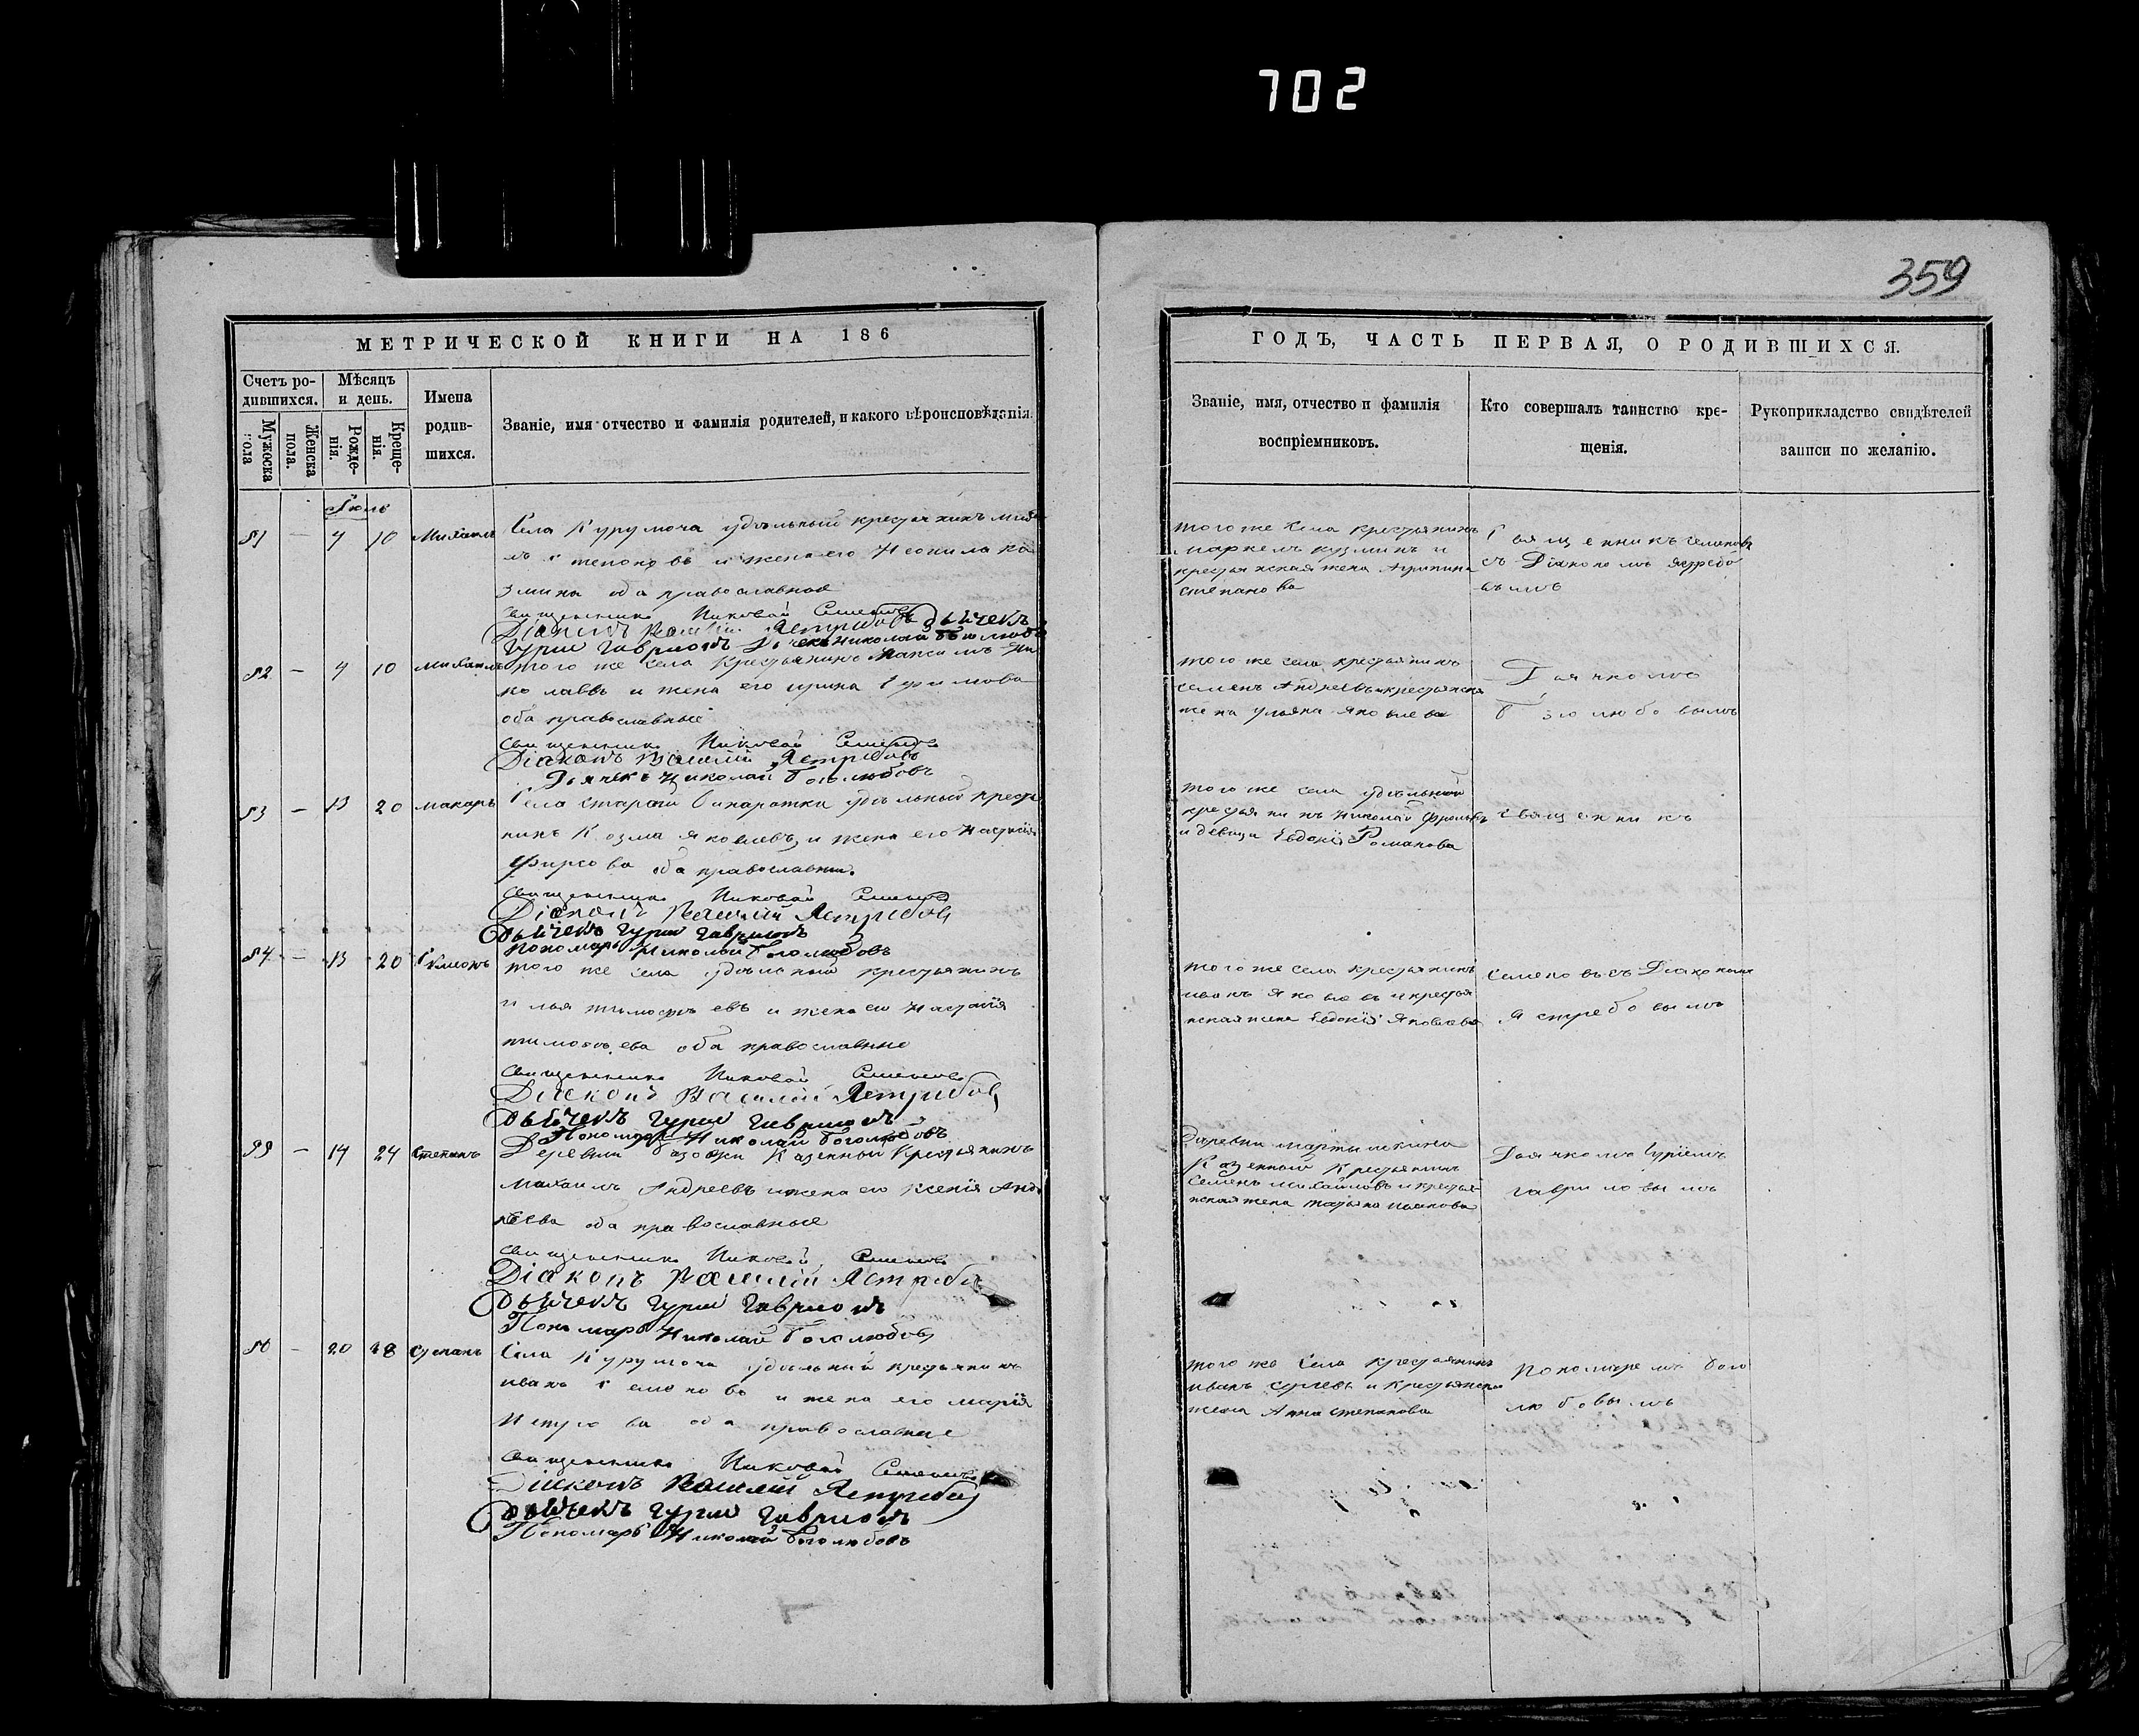 702
359
МЕТРИЧЕСКОЙ КНИГИ НА 186
ГОДЪ, ЧАСТЬ ПЕРВАЯ, О РОДИВШИХСЯ.
Счетъ ро-
дившихся.
Мужска
пола
Женска
пола.
Мѣсяцъ
и день.
Рожде-
нія.
Креще-
нія.
Имена
родив-
шихся.
Званіе, имя отчество и фамилія родителей, и какого вѣроисповѣданія.
Званіе, имя, отчество и фамилія
воспріемниковъ.
Кто совершалъ таинство кре-
щенія.
Рукоприкладство свидѣтелей
записи по желанію.
Іюль
81 — 4 10 Михаилъ
Села Курумоча удѣльный крестьянинъ
и жена его Неонила Ко
змина оба православные
Священникъ Николай Семеновъ
Діаконъ Василій Ястребовъ Дьячекъ
Гурій Гавриловъ
того же села крестьянинъ
Маркелъ Кузминъ и
крестьянская жена Агрипина
степанова
Священникъ Семеновъ
съ Діакономъ Ястребо
вымъ
82 — 4 10 Михаилъ
того же села крестьянинъ Максимъ Ни
колаевъ и жена его ирина Ефимова
оба православные
Священникъ Николай Семеновъ
Діаконъ Василій Ястребовъ
Дьячекъ Николай Боголюбовъ
того же села крестьянинъ
семенъ Андреевъ и крестьянска
жена ульяна яковлева
Дьячкомъ
Боголюбовымъ
83 — 13 20 макаръ
Села старой Бинаратки удѣльный крестья
нинъ Козма яковлевъ и жена его Настасія
Фирсова оба православны.
Священникъ Николай Семеновъ
Діаконъ Василій Ястребовъ
Дьячекъ Гурій Гавриловъ
Пономарь Николай Боголюбовъ
того же села удѣльный
крестьянинъ Николай Фроловъ
и девица Евдокія Романова
Священникъ
84 — 13 20
того же села удѣльный крестьянинъ
илья тимофеевъ и жена его Настасія
тимофеева оба православные
Священникъ Николай Семеновъ
Діаконъ Василій Ястребовъ
Дьячекъ Гурій Гавриловъ
Пономарь Николай Боголюбовъ
того же села крестьянинъ
иванъ яковлевъ и крестья
нская жена Евдокія Яковлева
Семеновъ съ Діакономъ
Ястребовымъ
14 24 Степанъ
Деревни Казенный Крестьянинъ
Михаилъ Андреевъ и жена его Ксенія Анд
реева оба православные
Священникъ Николай Семеновъ
Діаконъ Василій Ястребовъ
Дьячекъ Гурій Гавриловъ
Пономарь Николай Боголюбовъ
Деревни мартышкина
Казенный Крестьянинъ
Семенъ Михайловъ и крестья-
нская жена татьяна иванова
Дьячкомъ Гуріемъ
Гавриловымъ
20 28 Степанъ
Села Курумоча удѣльный крестьянинъ
иванъ Семеновъ и жена его марія
Петрова оба православные
Священникъ Николай Семеновъ
Діаконъ Василій Ястребовъ
Дьячекъ Гурій Гавриловъ
Пономарь Николай Боголюбовъ
того же села крестьянинъ
иванъ сергеевъ и крестьянска
жена Анна степанова
Пономаремъ Бого
любовымъ